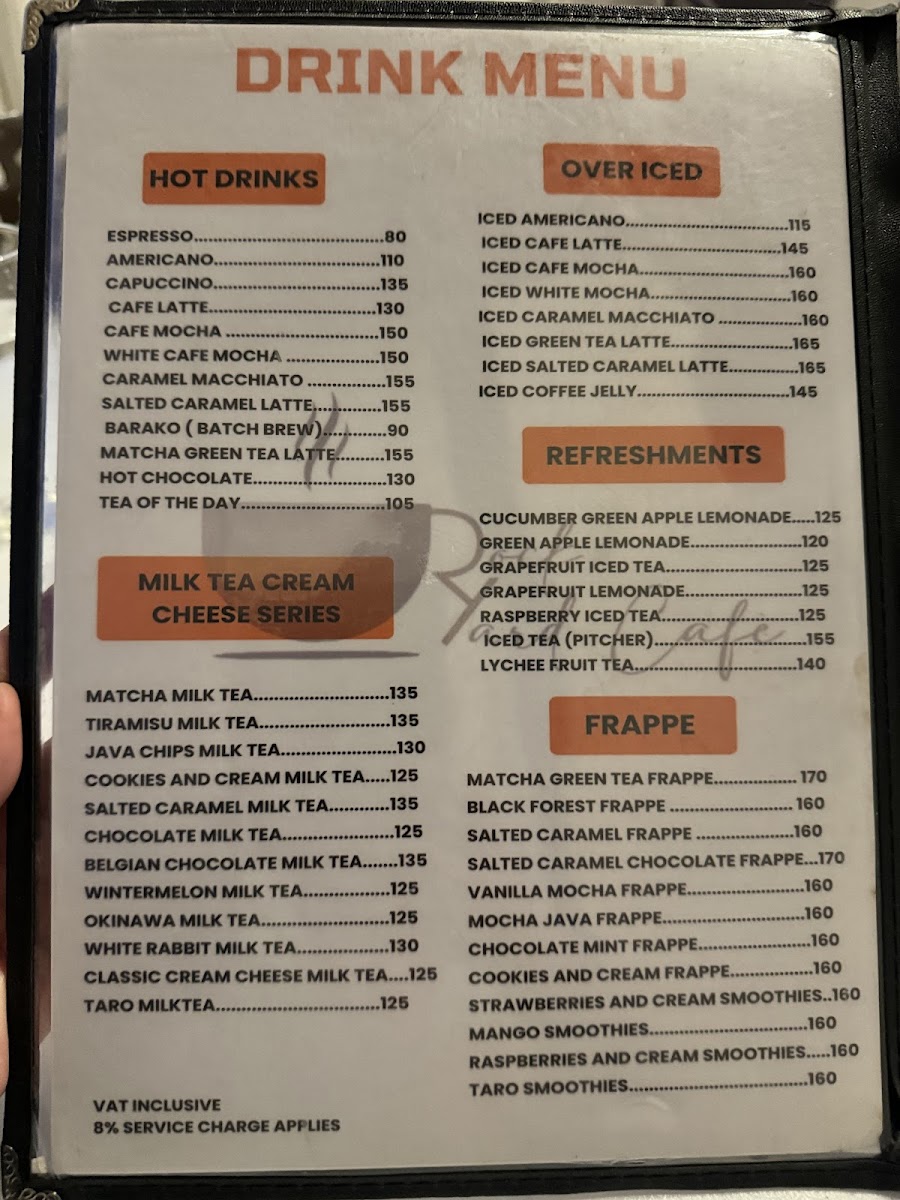 DRINK MENU
HOT DRINKS
ESPRESSO................................80
AMERICANO............................110
CAPUCCINO............................135
CAFE LATTE............................130
CAFE MOCHA ..........................150
WHITE CAFE MOCHA ....................150
CARAMEL MACCHIATO ..................155
SALTED CARAMEL LATTE................155
BARAKO ( BATCH BREW)............90
MATCHA GREEN TEA LATTE..........155
HOT CHOCOLATE........................130
TEA OF THE DAY..........................105
MILK TEA CREAM
CHEESE SERIES
MATCHA MILK TEA........................135
TIRAMISU MILK TEA......................135
JAVA CHIPS MILK TEA....................130
COOKIES AND CREAM MILK TEA.....125
SALTED CARAMEL MILK TEA...........135
CHOCOLATE MILK TEA....................125
BELGIAN CHOCOLATE MILK TEA.......135
WINTERMELON MILK TEA................125
OKINAWA MILK TEA......................125
WHITE RABBIT MILK TEA................130
CLASSIC CREAM CHEESE MILK TEA....125
TARO MILKTEA............................125
VAT INCLUSIVE
8% SERVICE CHARGE APPLIES
OVER ICED
ICED AMERICANO............................115
ICED CAFE LATTE............................145
ICED CAFE MOCHA..........................160
ICED WHITE MOCHA........................160
ICED CARAMEL MACCHIATO ..............160
ICED GREEN TEA LATTE....................165
ICED SALTED CARAMEL LATTE............165
ICED COFFEE JELLY..........................145
REFRESHMENTS
CUCUMBER GREEN APPLE LEMONADE.....125
GREEN APPLE LEMONADE....................120
GRAPEFRUIT ICED TEA........................125
GRAPEFRUIT LEMONADE....................125
RASPBERRY ICED TEA........................125
ICED TEA (PITCHER)..........................155
LYCHEE FRUIT TEA............................140
Rock
Yard Cafe
FRAPPE
MATCHA GREEN TEA FRAPPE.............. 170
BLACK FOREST FRAPPE ...................... 160
SALTED CARAMEL FRAPPE ..................160
SALTED CARAMEL CHOCOLATE FRAPPE...170
VANILLA MOCHA FRAPPE....................160
MOCHA JAVA FRAPPE........................160
CHOCOLATE MINT FRAPPE..................160
COOKIES AND CREAM FRAPPE..............160
STRAWBERRIES AND CREAM SMOOTHIES..160
MANGO SMOOTHIES............................160
RASPBERRIES AND CREAM SMOOTHIES.....160
TARO SMOOTHIES................................160